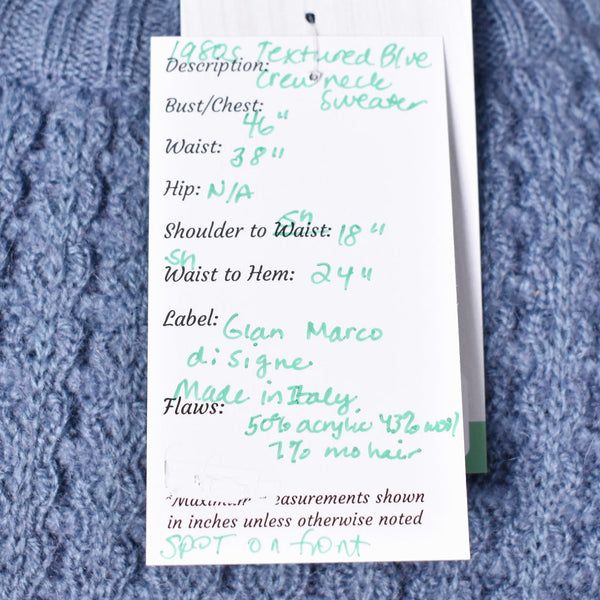 1980s Textured Blue
Description:
Crewneck
Bust/Chest: Sweater
46"
Waist: 38"
Hip: N/A
Sh
Shoulder to Waist: 18"
Sh
Waist to Hem: 24"
Label: Gian Marco
di Signe
Made in Italy.
Flaws:
50% acrylic 43% wool
7% mohair
*Maximum easurements shown
in inches unless otherwise noted
SPOT on front